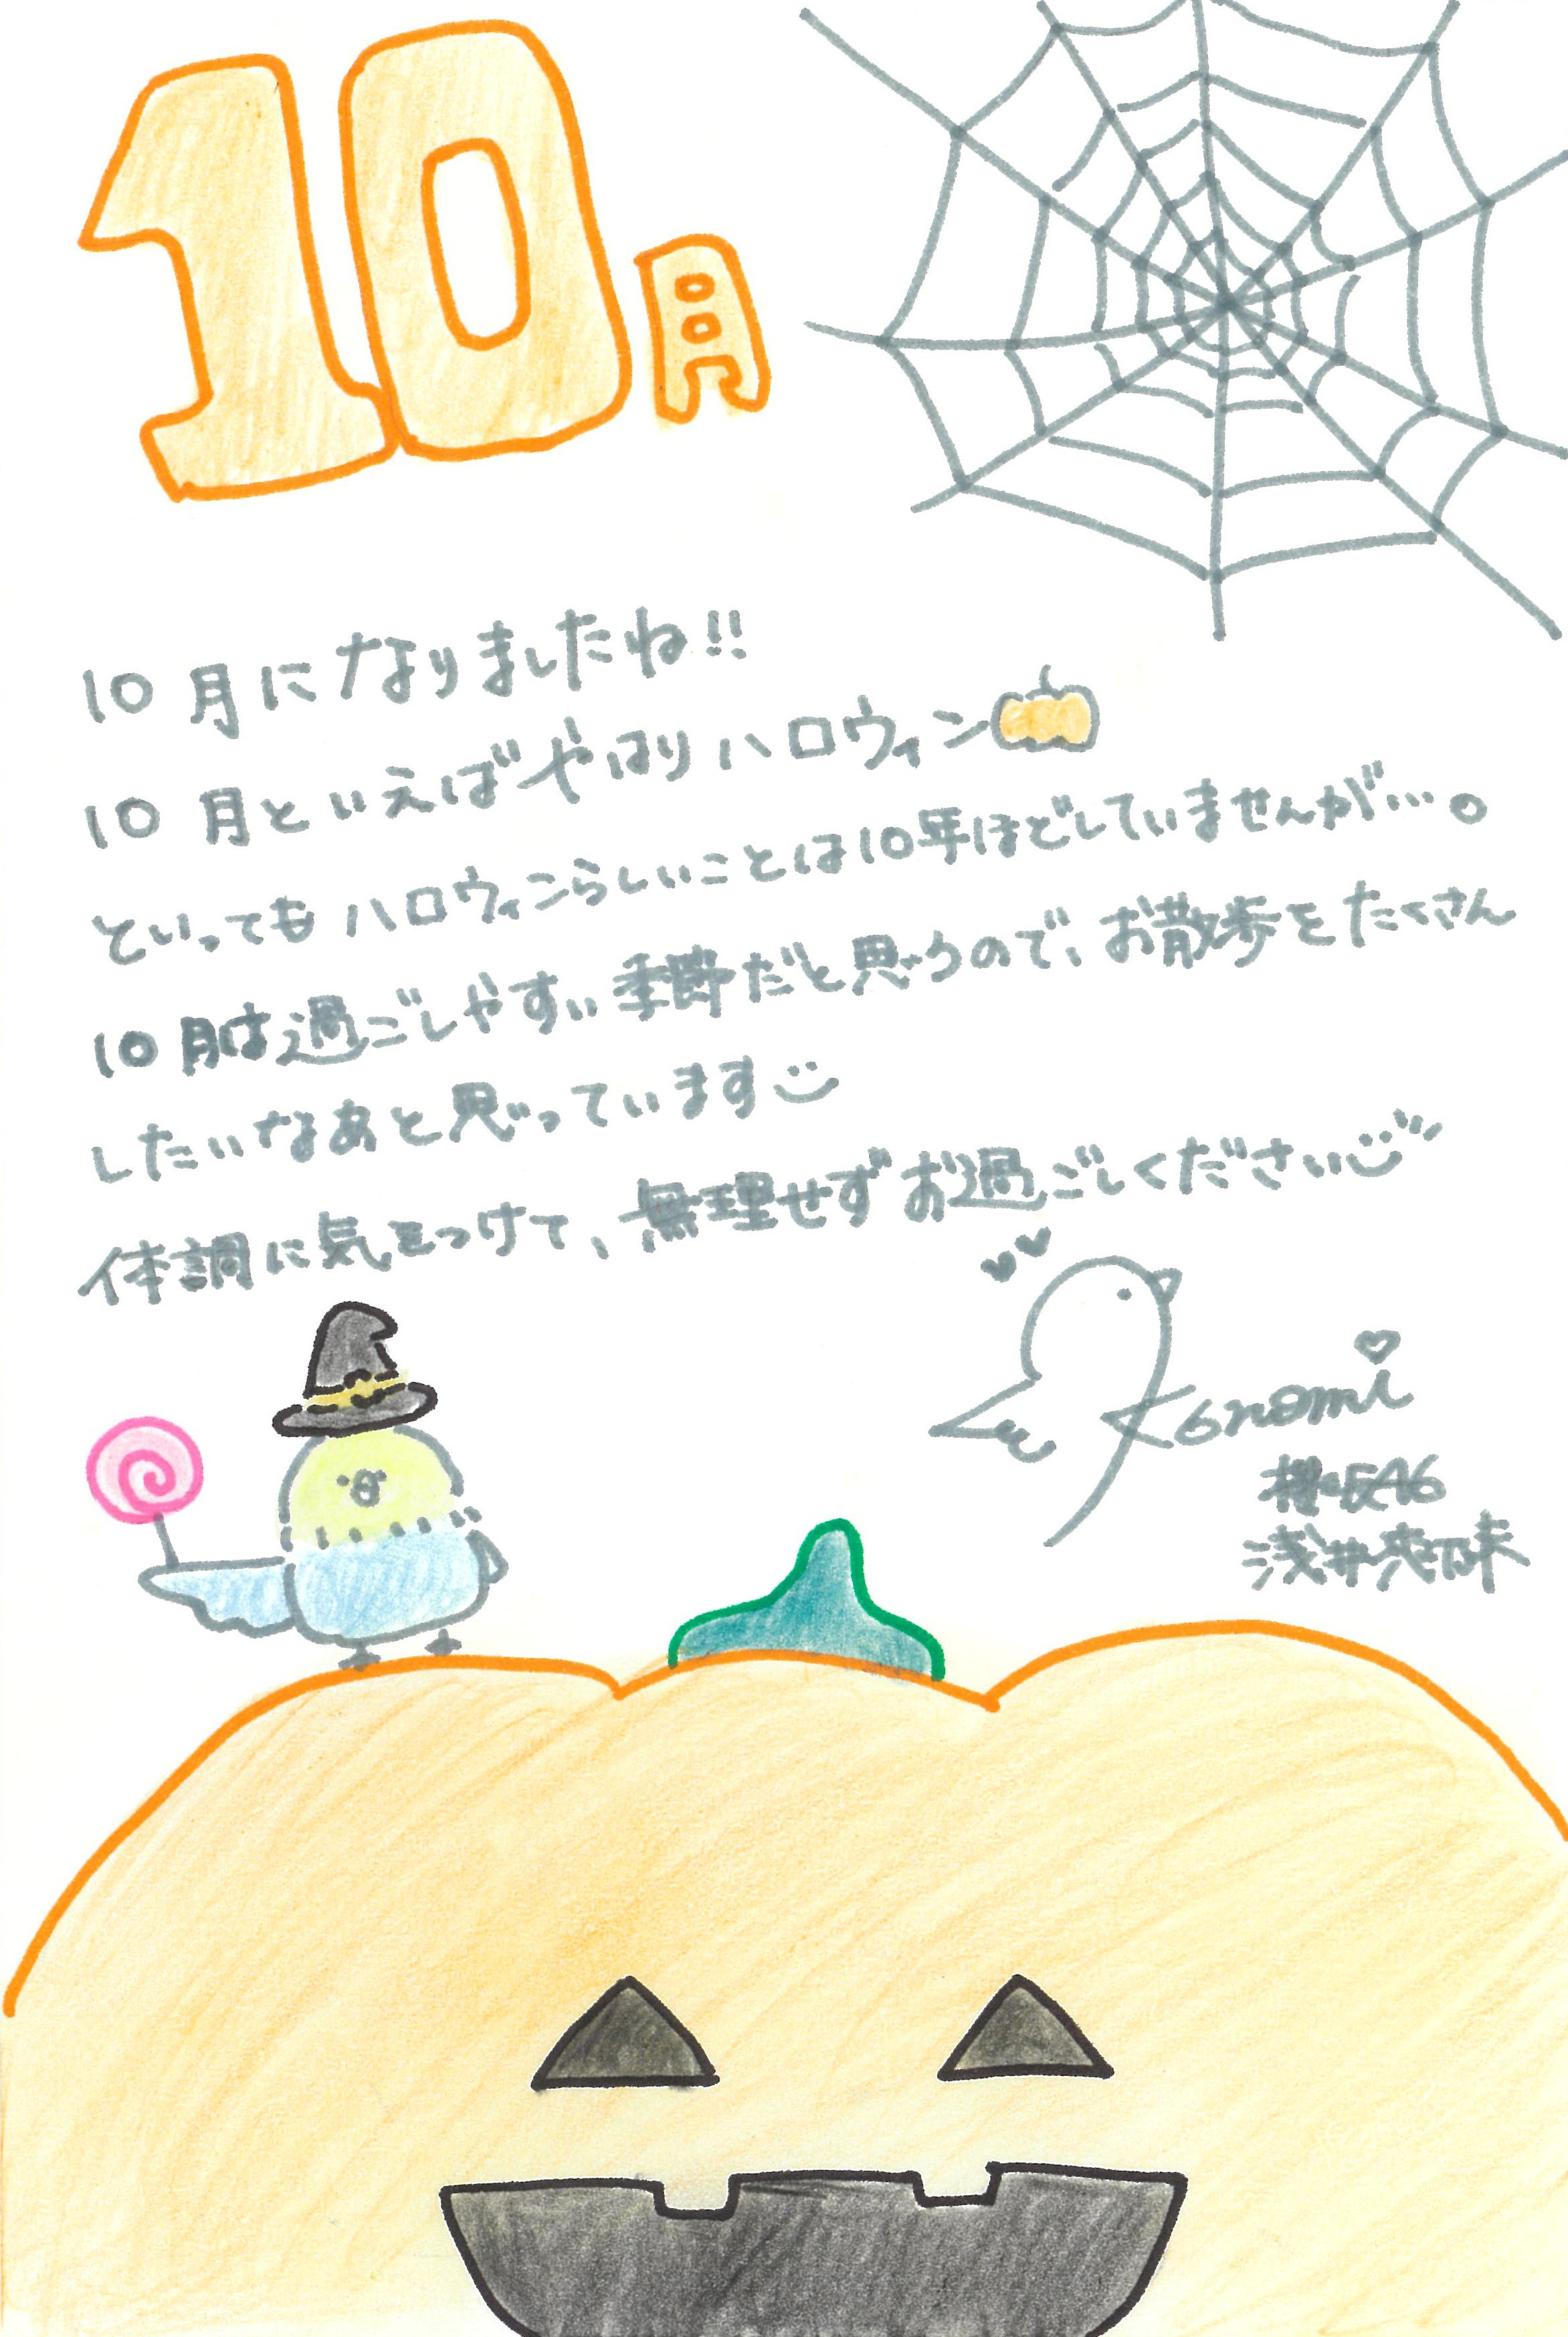 10月
10月になりましたね!!
10月といえばやはりハロウィン
といってもハロウィンらしいことは10年ほどしていませんが…。
10月は過ごしやすい季節だと思うので、お散歩をたくさん
したいなあと思っています
体調に気をつけて、無理せずお過ごしください
Konomi
櫻坂46
浅井恋乃未